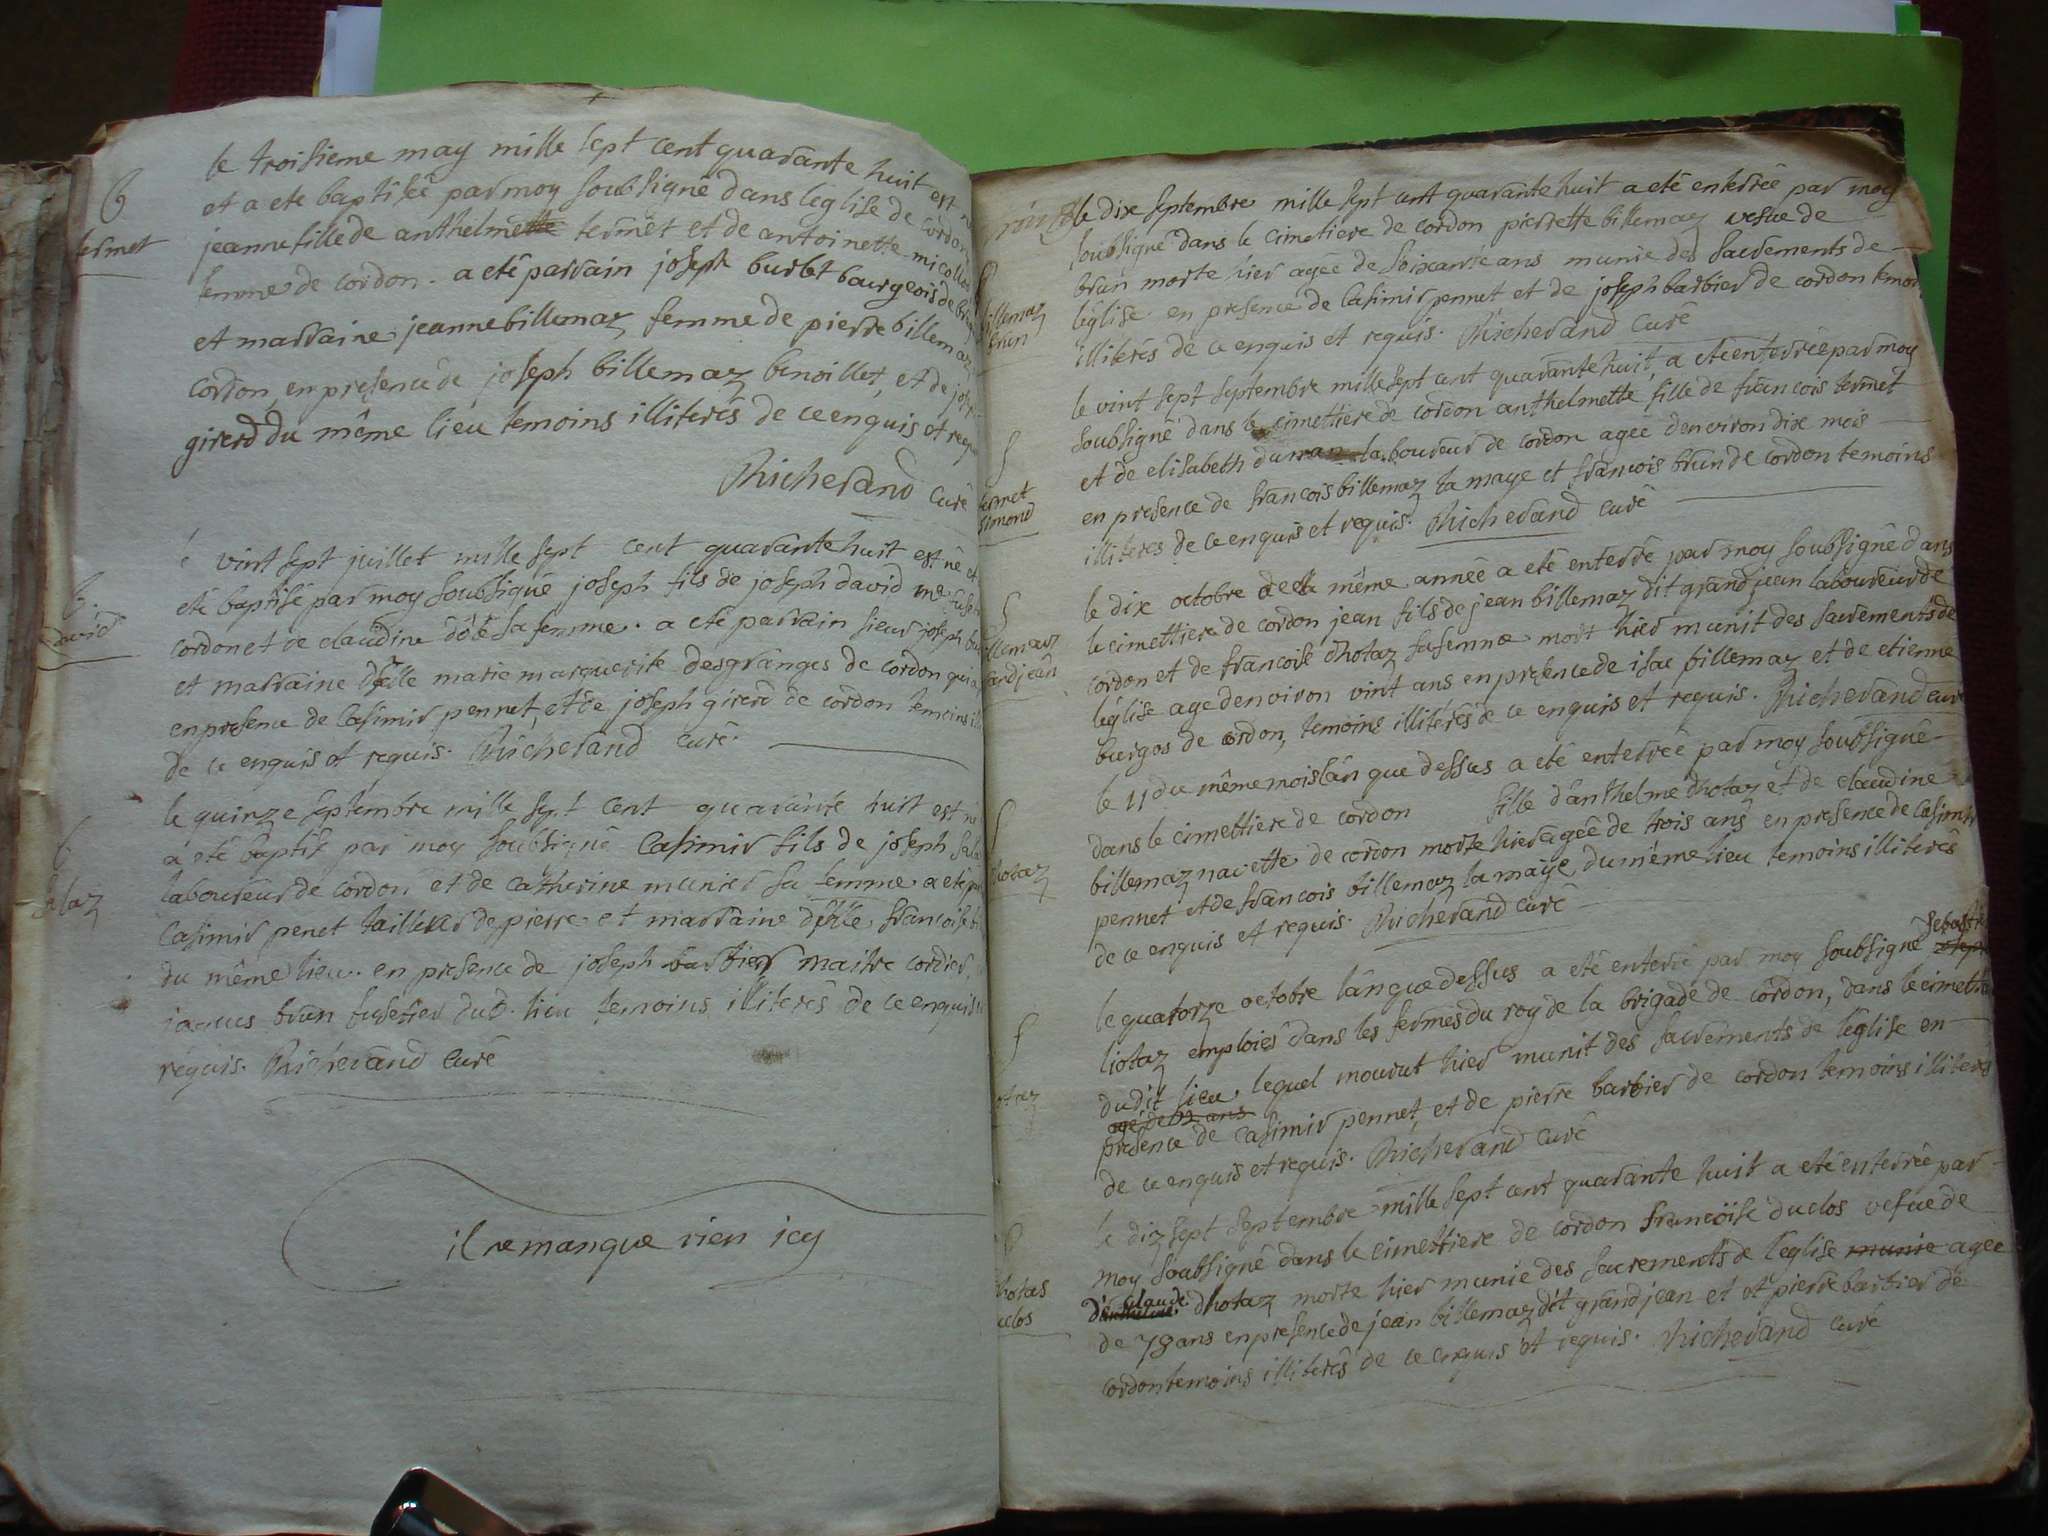 le troisieme may mille sept cent quarante huit est
et a eté baptisée par moy soubsigné dans l'église de cordon
B
jeanne fille de anthelme termet et de antoinette micollet
termet
femme de cordon. a eté parrain joseph burlet bourgeois de
et marraine jeanne billemaz femme de pierre billemaz
cordon, en presence de joseph billemaz benoillet, et de
girerd du même lieu temoins illiterés de ce enquis et
Richerand curé
vint sept juillet mille sept cent quarante huit est né et
B.
eté baptisé par moy soubsigné joseph fils de joseph david
david
cordon et de claudine sa femme. a eté parrain sieur joseph
et marraine dlle marie marguerite desgranges de cordon
en presence de Casimir pennet, et de joseph girerd de cordon temoins
de ce enquis et requis. Richerand curé.
le quinze septembre mille sept cent quarante huit est né
a eté baptisé par moy soubsigné Casimir fils de joseph
laboureur de cordon et de catherine munier sa femme a eté
Casimir penet tailleur de pierre et marraine dlle françoise
du même lieu. en presence de joseph barbier maitre cordier,
jacques brun fusetier dud. lieu temoins illiterés de ce enquis
requis. Richerand curé
il ne manque rien icy
le dix septembre mille sept cent quarante huit a eté enterrée par moy
soubsigné dans le cimetiere de cordon pierrette billemaz vefue de
brun morte hier agée de soixante ans munie des sacrements de
billemaz
l'église en presence de Casimir pennet et de joseph barbier de cordon
brun
illiterés de ce enquis et requis. Richerand curé
le vint sept septembre mille sept cent quarante huit, a eté enterrée par moy
soubsigné dans le cimettiere de cordon anthelmette fille de francois termet
et de elisabeth laboureur de cordon agée denviron dix mois
termet
en presence de francois billemaz la maye et francois brun de cordon temoins
illiterés de ce enquis et requis. Richerand curé
le dix octobre de la même année a eté enterré par moy soubsigné dans
le cimettiere de cordon jean fils de jean billemaz dit grandjean laboureur de
cordon et de francoise dhotaz sa femme mort hier munit des sacrements de
l'église age denviron vint ans en presence de isac billemaz et de etienne
burgos de cordon, temoins illiterés de ce enquis et requis. Richerand curé
le 11 du même mois lan que dessus a eté enterrée par moy soubsigné
dans le cimettiere de cordon fille d'anthelme dhotaz et de claudine
billemaz navette de cordon morte hier agée de trois ans en presence de casimir
pennet et de francois billemaz la maye du même lieu temoins illiterés
de ce enquis et requis. Richerand curé
le quatorze octobre lan que dessus a eté enterré par moy soubsigné
liotaz emploié dans les fermes du roy de la brigade de cordon, dans le cimettiere
dudit lieu, lequel mourut hier munit des sacrements de l'église en
agé de ans
presence de Casimir pennet, et de pierre barbier de cordon temoins illiterés
de ce enquis et requis. Richerand curé
le dix sept septembre mille sept cent quarante huit a eté enterrée par
moy soubsigné dans le cimettiere de cordon francoise duclos vefue de
claude
dhotaz morte hier munie des sacrements de l'église munie agée
de 78 ans en presence de jean billemaz dit grandjean et et pierre barbier de
cordon temoins illiterés de ce enquis et requis. Richerand curé